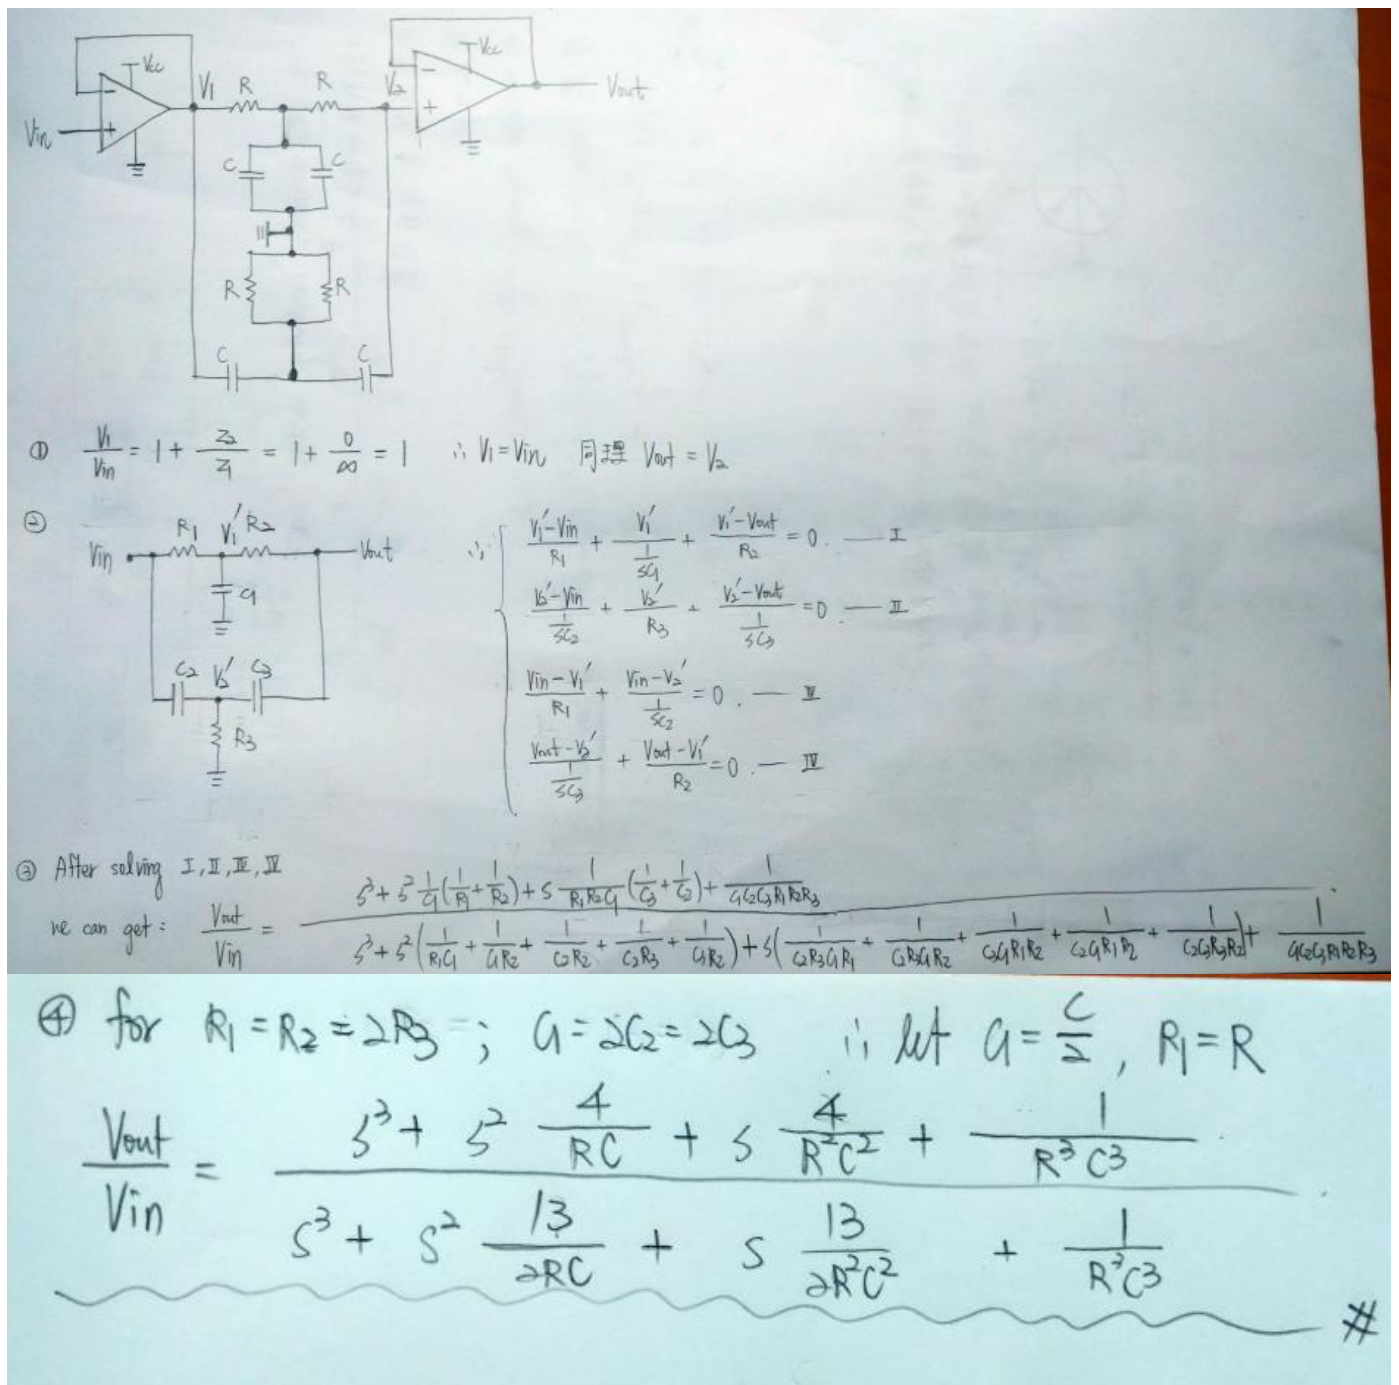 Vcc
Vcc
Vin
V1
R
R
V2
Vout
C
C
R
R
C
C
① V1/Vin = 1 + Z2/Z1 = 1 + 0/∞ = 1 ∴ V1 = Vin 同理 Vout = V2
②
Vin
R1
V1'
R2
Vout
C1
C2
V2'
C3
R3
∴ { (V1'-Vin)/R1 + V1'/(1/SC1) + (V1'-Vout)/R2 = 0. — I
(V2'-Vin)/(1/SC2) + V2'/R3 + (V2'-Vout)/(1/SC3) = 0. — II
(Vin-V1')/R1 + (Vin-V2')/(1/SC2) = 0. — III
(Vout-V2')/(1/SC3) + (Vout-V1')/R2 = 0. — IV
③ After solving I, II, III, IV
we can get: Vout/Vin = [S³ + S² 1/C1 (1/R1 + 1/R2) + S 1/(R1R2C1) (1/C3 + 1/C2) + 1/(C1C2C3R1R2R3)] / [S³ + S² (1/(R1C1) + 1/(C1R2) + 1/(C2R2) + 1/(C2R3) + 1/(C3R2)) + S (1/(C2R3C1R1) + 1/(C2R3C1R2) + 1/(C3C1R1R2) + 1/(C2C1R1R2) + 1/(C2C3R3R2)) + 1/(C1C2C3R1R2R3)]
④ for R1 = R2 = 2R3 ; C1 = 2C2 = 2C3 ∴ let C1 = C/2, R1 = R
Vout/Vin = [S³ + S² 4/(RC) + S 4/(R²C²) + 1/(R³C³)] / [S³ + S² 13/(2RC) + S 13/(2R²C²) + 1/(R³C³)]
#